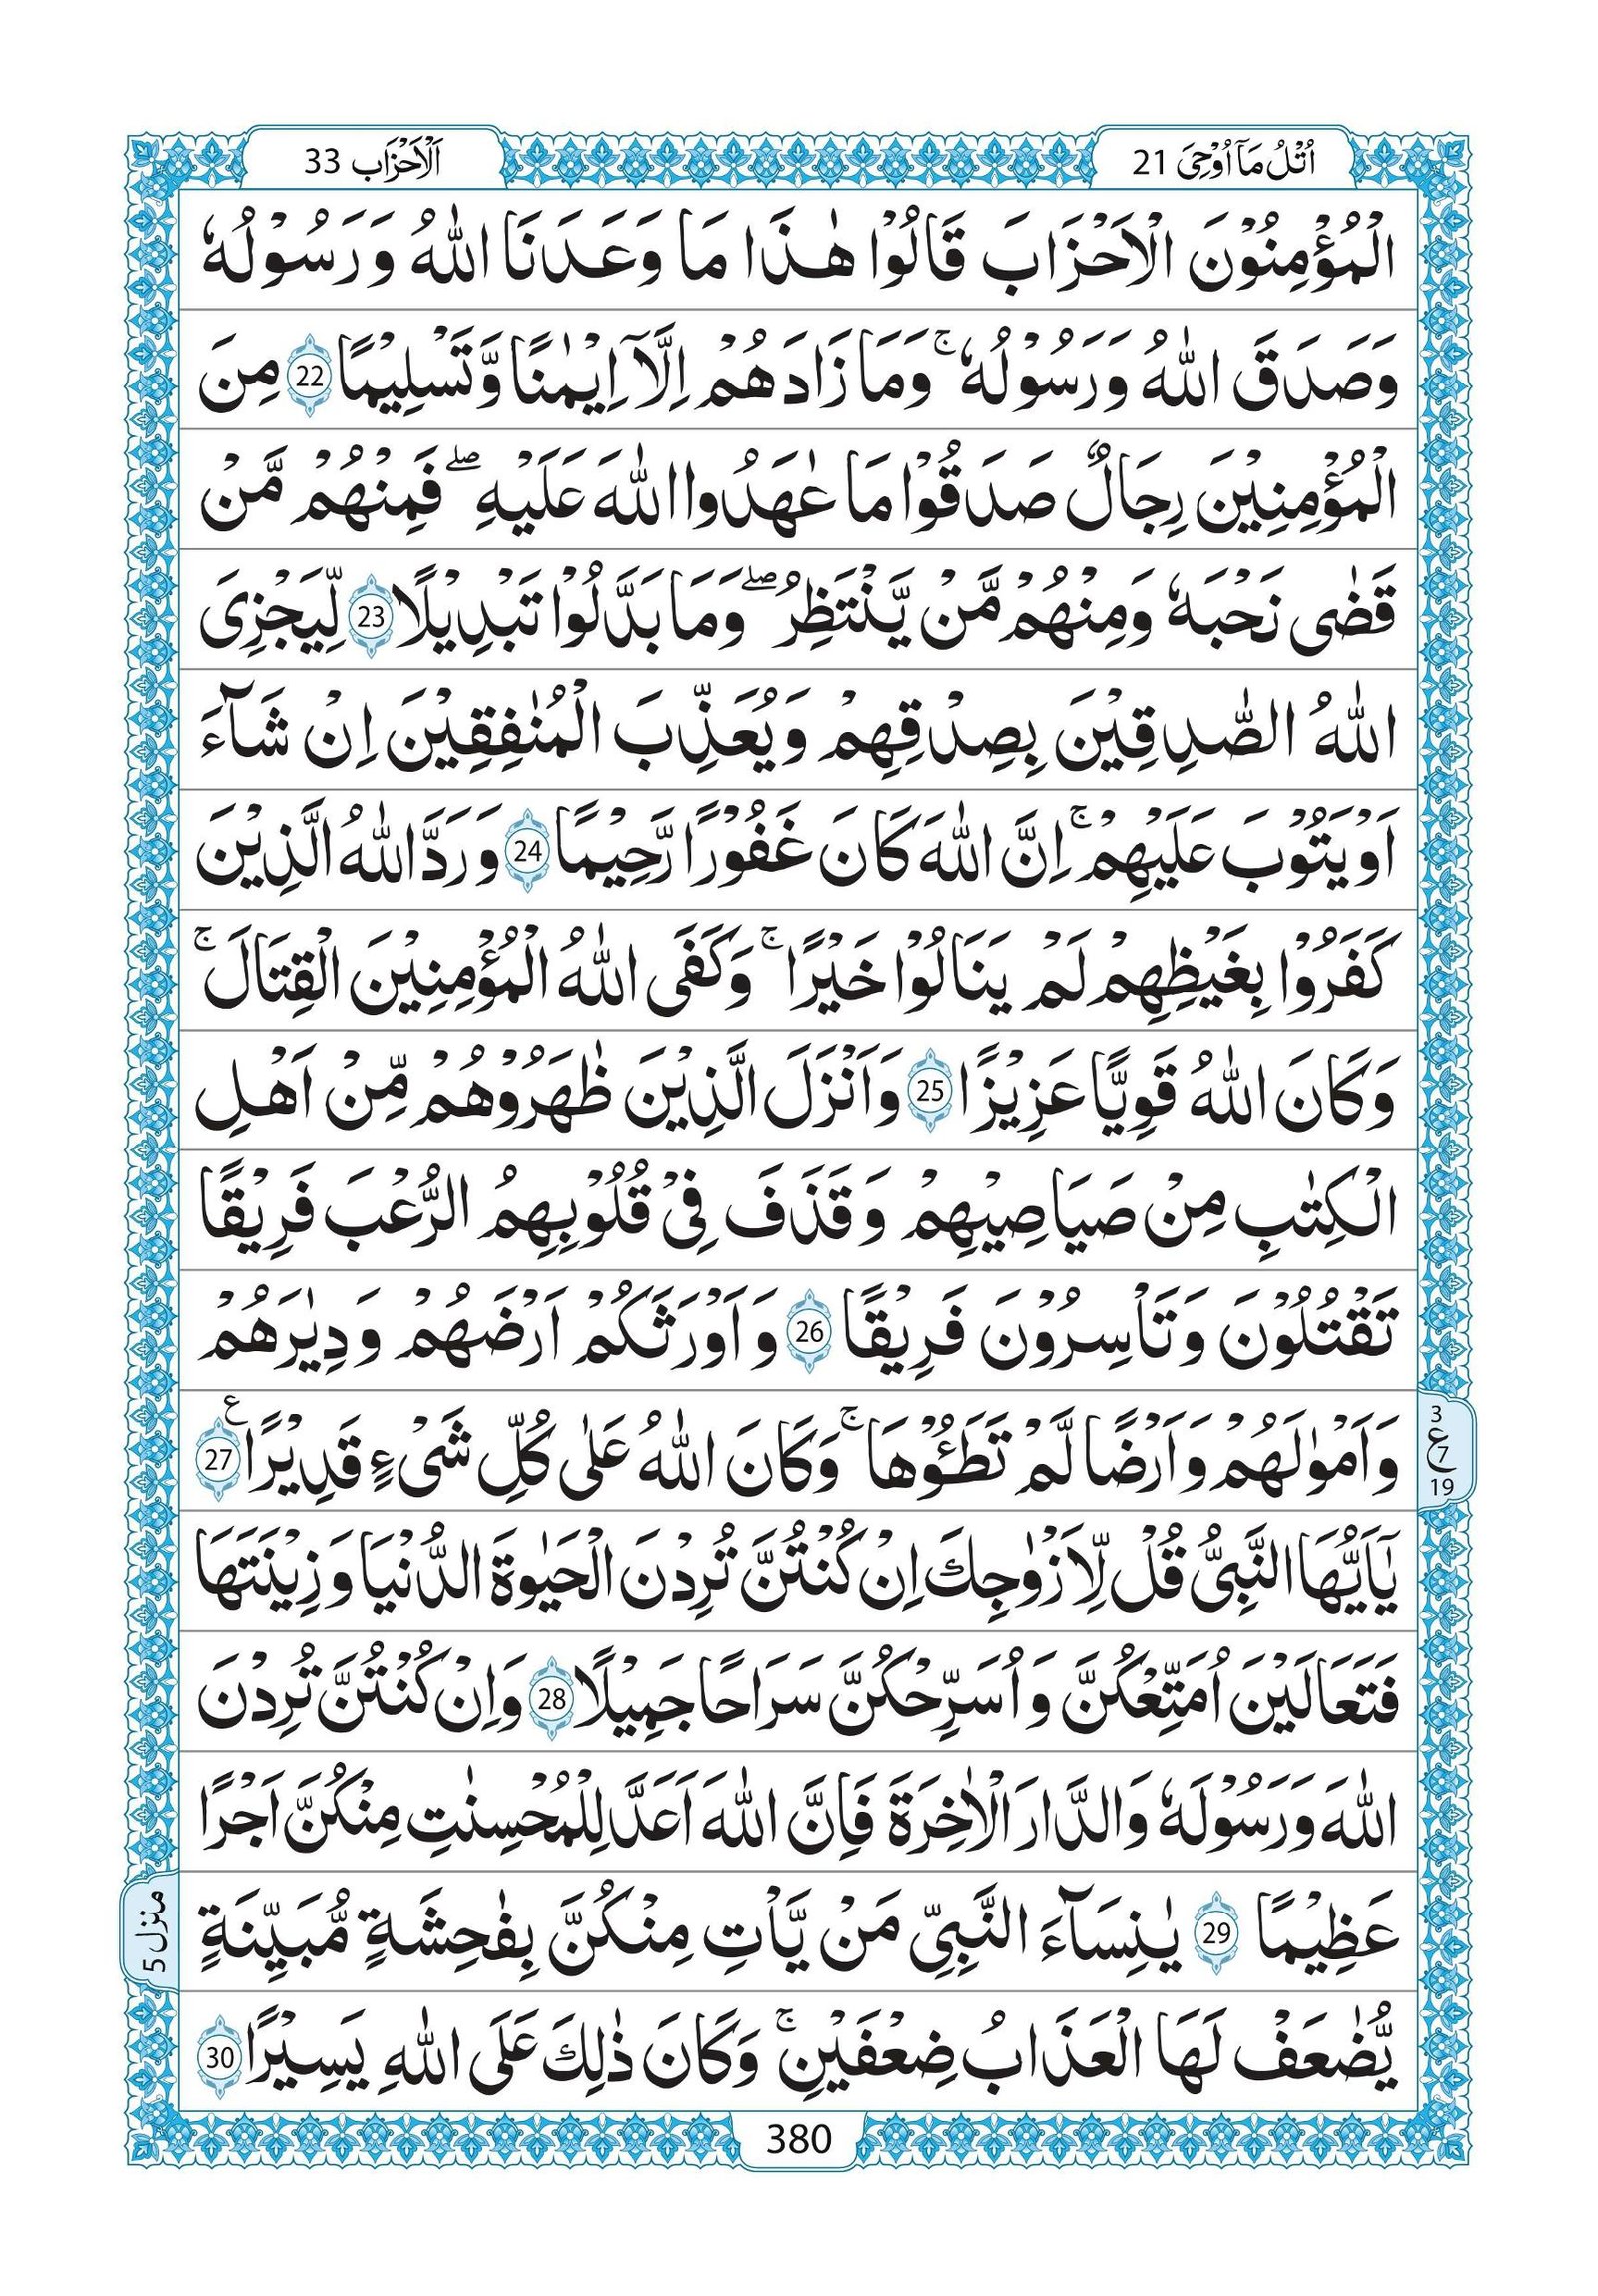 اُتْلُ مَاۤ اُوْحِیَ 21
اَلْاَحْزَاب 33
الْمُؤْمِنُوْنَ الْاَحْزَابَ قَالُوْا هٰذَا مَا وَعَدَنَا اللّٰهُ وَ رَسُوْلُهٗ
وَصَدَقَ اللّٰهُ وَرَسُوْلُهٗ ۚ وَمَا زَادَهُمْ اِلَّاۤ اِيْمٰنًا وَّتَسْلِيْمًا 22 مِنَ
الْمُؤْمِنِيْنَ رِجَالٌ صَدَقُوْا مَا عٰهَدُوا اللّٰهَ عَلَيْهِ ۖ فَمِنْهُمْ مَّنْ
قَضٰى نَحْبَهٗ وَمِنْهُمْ مَّنْ يَّنْتَظِرُ ۖ وَمَا بَدَّلُوْا تَبْدِيْلًا 23 لِّيَجْزِیَ
اللّٰهُ الصّٰدِقِيْنَ بِصِدْقِهِمْ وَيُعَذِّبَ الْمُنٰفِقِيْنَ اِنْ شَآءَ
اَوْ يَتُوْبَ عَلَيْهِمْ ۚ اِنَّ اللّٰهَ كَانَ غَفُوْرًا رَّحِيْمًا 24 وَ رَدَّ اللّٰهُ الَّذِيْنَ
كَفَرُوْا بِغَيْظِهِمْ لَمْ يَنَالُوْا خَيْرًا ۚ وَكَفَى اللّٰهُ الْمُؤْمِنِيْنَ الْقِتَالَ ۚ
وَكَانَ اللّٰهُ قَوِيًّا عَزِيْزًا 25 وَاَنْزَلَ الَّذِيْنَ ظٰهَرُوْهُمْ مِّنْ اَهْلِ
الْكِتٰبِ مِنْ صَيَاصِيْهِمْ وَ قَذَفَ فِیْ قُلُوْبِهِمُ الرُّعْبَ فَرِيْقًا
تَقْتُلُوْنَ وَ تَاْسِرُوْنَ فَرِيْقًا 26 وَ اَوْرَثَكُمْ اَرْضَهُمْ وَ دِيٰرَهُمْ
وَ اَمْوٰلَهُمْ وَ اَرْضًا لَّمْ تَطَئُوْهَا ۚ وَكَانَ اللّٰهُ عَلٰى كُلِّ شَیْءٍ قَدِيْرًا 27 ع
3
ع
7
19
يٰۤاَيُّهَا النَّبِیُّ قُلْ لِّاَزْوٰجِكَ اِنْ كُنْتُنَّ تُرِدْنَ الْحَيٰوةَ الدُّنْيَا وَ زِيْنَتَهَا
فَتَعَالَيْنَ اُمَتِّعْكُنَّ وَ اُسَرِّحْكُنَّ سَرَاحًا جَمِيْلًا 28 وَاِنْ كُنْتُنَّ تُرِدْنَ
اللّٰهَ وَرَسُوْلَهٗ وَالدَّارَ الْاٰخِرَةَ فَاِنَّ اللّٰهَ اَعَدَّ لِلْمُحْسِنٰتِ مِنْكُنَّ اَجْرًا
عَظِيْمًا 29 يٰنِسَآءَ النَّبِیِّ مَنْ يَّاْتِ مِنْكُنَّ بِفٰحِشَةٍ مُّبَيِّنَةٍ
منزل 5
يُّضٰعَفْ لَهَا الْعَذَابُ ضِعْفَيْنِ ۚ وَكَانَ ذٰلِكَ عَلَى اللّٰهِ يَسِيْرًا 30
380